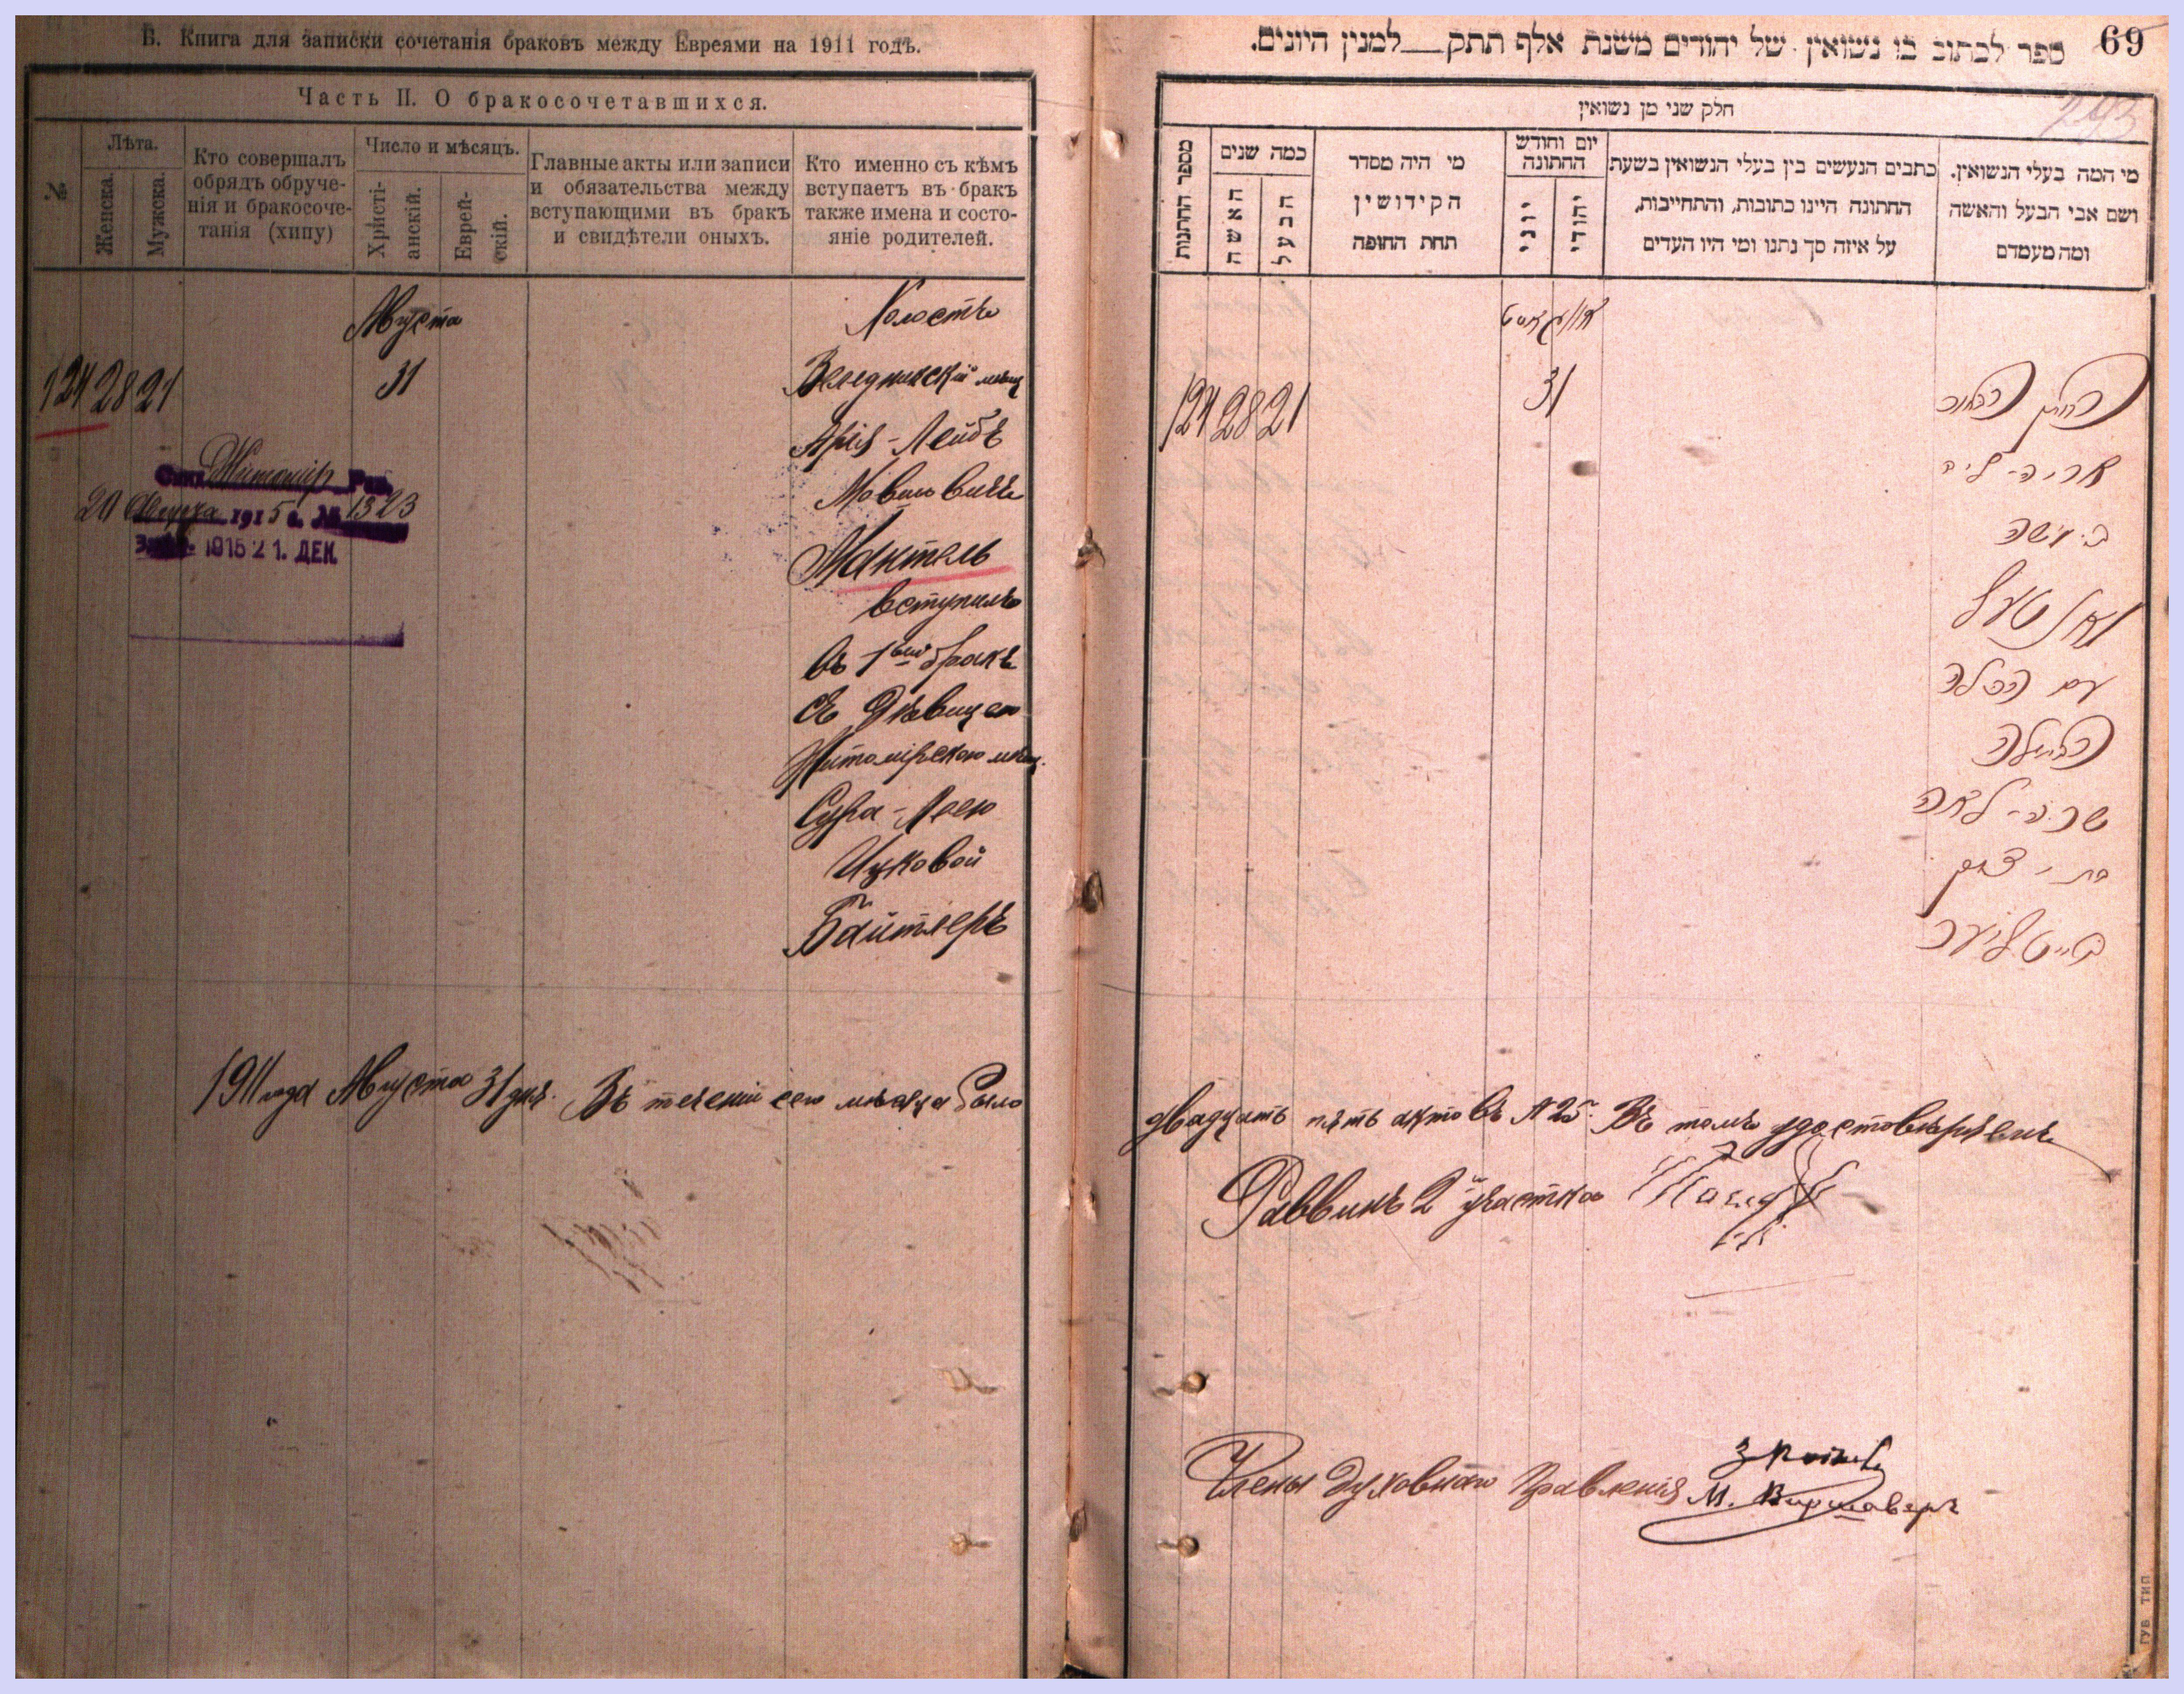 Б. Книга для записки сочетанія браковъ между Евреями на 1911 годъ.
Часть II. О бракосочетавшихся.
№
Лѣта.
Женска.
Мужска.
Кто совершалъ
обрядъ обруче-
нія и бракосоче-
танія (хипу)
Число и мѣсяцъ.
Христі-
анскій.
Еврей-
скій.
Главные акты или записи
и обязательства между
вступающими въ бракъ
и свидѣтели оныхъ.
Кто именно съ кѣмъ
вступаетъ въ бракъ
также имена и состо-
яніе родителей.
Августа
Холостъ
124 28 21
31
Веледникскій мѣщ
Арія-Лейбъ
Мовшовичъ
Мактель
вступилъ
въ 1вый бракъ
съ Дѣвицею
Житомірскою мѣщ.
Сура-Леею
Ицковой
Байтлеръ
Житомір
20 1915 г. № 1323
1915 21. ДЕК.
1911 года Августа 31 дня. Въ теченіи сего мѣсяца было
69
ספר לכתוב בו נשואין של יהודים משנת אלף תתק למנין היונים.
חלק שני מן נשואין
מספר החתנות
כמה שנים
האשה
הבעל
מי היה מסדר
הקידושין
תחת החופה
יום וחודש
החתונה
יוני
יהודי
כתבים הנעשים בין בעלי הנשואין בשעת
החתונה היינו כתובות, והתחייבות,
על איזה סך נתנו ומי היו העדים
מי המה בעלי הנשואין.
ושם אבי הבעל והאשה
ומה מעמדם
אווגאסט
124 28 21
31
החתן הבחור
אריה-ליב
ב. משה
מאנטעל
עם הכלה
הבתולה
שרה-לאה
בת יצחק
בייטליער
двадцать пять актовъ №25. Въ томъ удостовѣряемъ
Раввинъ 2 участка
Члены Духовнаго Правленія
М. Варшаверъ
ГУБ ТИП